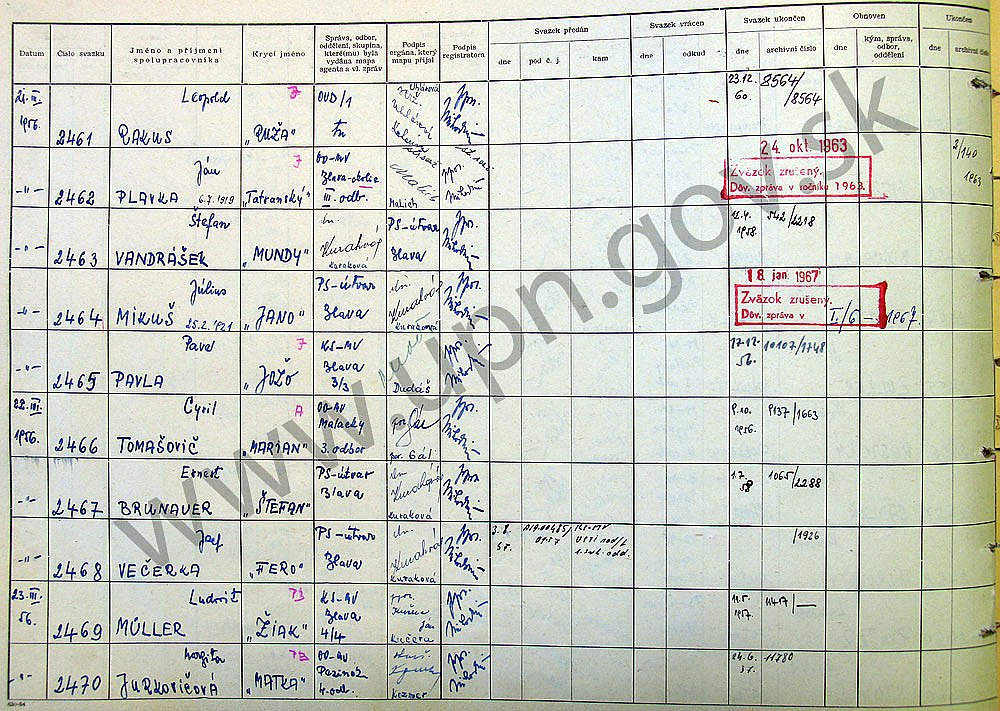 Datum
Číslo svazku
Jméno a příjmení spolupracovníka
Krycí jméno
Správa, odbor, oddělení, skupina, které(mu) byla vydána mapa agenta a vl. zpráv
Podpis orgána, který mapu přijal
Podpis registratora
Svazek předán
dne
pod č. j.
kam
Svazek vrácen
dne
odkud
Svazek ukončen
dne
archivní číslo
Obnoven
dne
kým, správa, odbor, oddělení
Ukončen
dne
archivní číslo
21. III. 1956. 2461 Leopold RAKUS "RUŽA" OVD/1 23.12. 60. 8564/8564
-"- 2462 Ján PLAVKA 6.7.1919 "Tatranský" OO-MV Blava-okolie III. odbr. Malich
24 okt. 1963
Zväzok zrušený.
Dôv. zpráva v ročníku 1963.
2/140 1963
-"- 2463 Štefan VANDRÁŠEK "MUNDY" Kuraková PS-útvar Blava 12.4. 1958. 542/2218
-"- 2464 Július MIKUŠ 25.2.1921 "JANO" PS-útvar Blava
18 jan. 1967
Zväzok zrušený.
Dôv. zpráva v I/6 - 1967
-"- 2465 Pavel PAVLA J "JOŽO" KS-MV Blava 3/3 Dudáš 17.12. 56. 10107/1748
22. III. 1956. 2466 Cyril TOMAŠOVIČ A "MARIAN" OO-MV Malacky 3. odbor por. Gál 9.10. 1956. 9137/1663
-"- 2467 Ernest BRUNAUER "ŠTEFAN" PS-útvar Blava Kuraková 1.7. 58 1065/2288
-"- 2468 Jozef VEČERKA "FERO" PS-útvar Blava Kuraková 3.8. 57. KS-MV /1926
23. III. 56. 2469 Ludovít MÜLLER "ŽIAK" KS-MV Blava 4/4 Ján Kučera 11.5. 1957. 11457/—
-"- 2470 Margita JURKOVIČOVÁ "MATKA" OO-MV Pezinok 4. odb. Kezmer 24.6. 57. 11780
www.upn.gov.sk